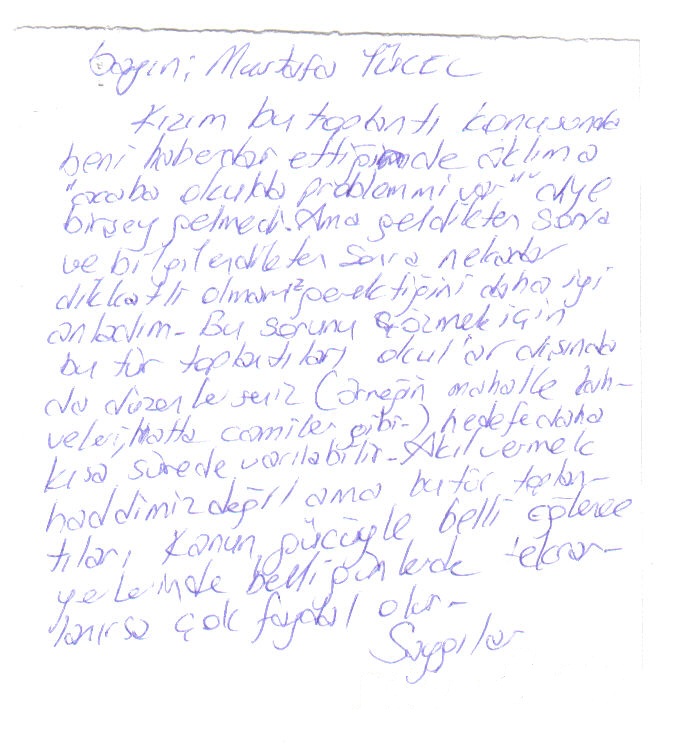 Sayın; Mustafa YÜCEL
Kızım bu toplantı konusunda
beni haberdar ettiğinde aklıma
"acaba okulda problemmi var" diye
birşey gelmedi. Ama geldikten sonra
ve bilgilendikten sonra nekadar
dikkatli olmamız gerektiğini daha iyi
anladım- Bu sorunu çözmek için
bu tür toplantıları okullar dışında
da düzenlerseniz (örneğin mahalle kah-
veleri, hatta camiler gibi-) hedefe daha
kısa sürede varılabilir- Akıl vermek
haddimiz değil ama bu tür toplan-
tılar, Kanun gücüyle belli eğlence
yerlerinde belli günlerde tekrar-
lanırsa çok faydalı olur-
Saygılar